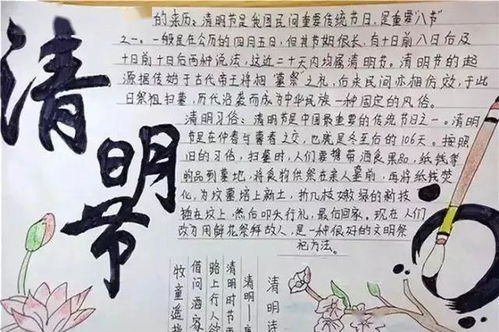 清明节
的来历：清明节是我国民间重要传统节日，是重要"八节"
之一。一般是在公历的四月五日，但其节期很长，有十日前八日后及
十日前十日后两种说法，这近二十天内均属清明节。清明节的起
源据传始于古代帝王将相"墓祭"之礼，后来民间亦相仿效，于此
日祭祖扫墓，历代沿袭而成为中华民族一种固定的风俗。
清明习俗：清明节是中国最重要的传统节日之一。清明
节是在仲春与暮春之交，也就是冬至后的106天。按照
旧的习俗，扫墓时，人们要携带酒食果品，纸钱等
物品到墓地，将食物供祭在亲人墓前，再将纸钱焚
化，为坟墓培上新土，折几枝嫩绿的新枝
插在坟上，然后叩头行礼，最后回家。现在人们
改为用鲜花祭拜故人，是一种很好的文明祭
祀方法。
清明诗
清明
清明时节
路上行人欲
借问酒家
牧童遥指